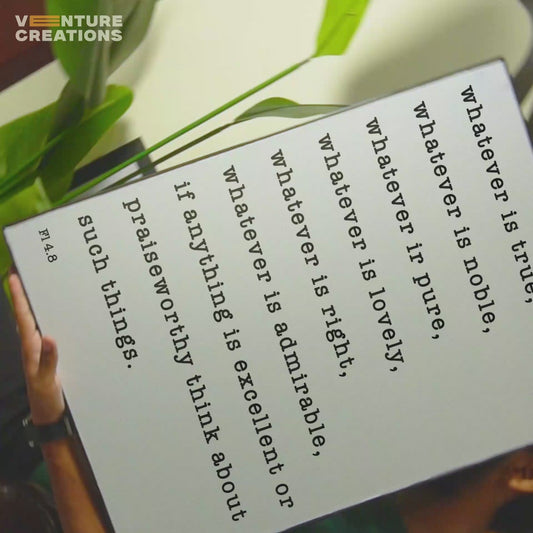 VENTURE
CREATIONS
whatever is true,
whatever is noble,
whatever ir pure,
whatever is lovely,
whatever is right,
whatever is admirable,
if anything is excellent or
praiseworthy think about
such things.
Fl 4.8